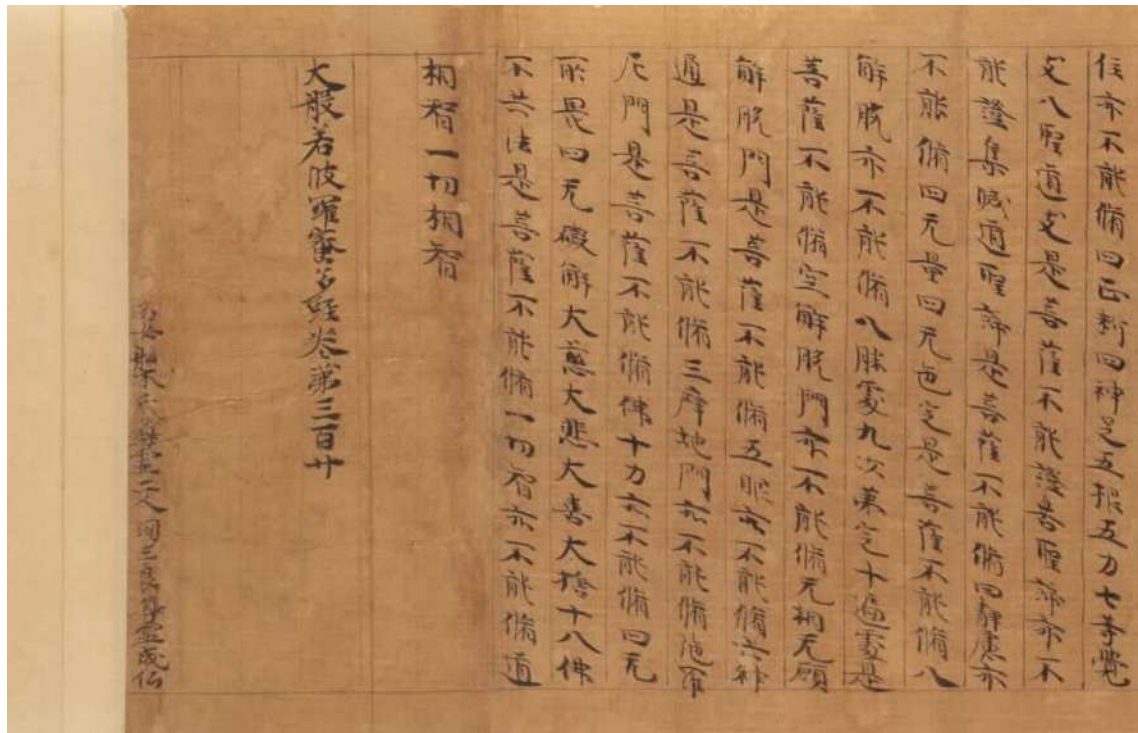 住亦不能脩四正断四神足五根五力七等覺
支八聖道支是菩薩不能證苦聖諦亦不
能證集滅道聖諦是菩薩不能脩四静慮亦
不能脩四无量四无色定是菩薩不能脩八
解脫亦不能脩八勝處九次第定十遍處是
菩薩不能脩空解脫門亦不能脩无相无願
解脫門是菩薩不能脩五眼亦不能脩六神
通是菩薩不能脩三摩地門亦不能脩陁羅
尼門是菩薩不能脩佛十力亦不能脩四无
所畏四无礙解大慈大悲大喜大捨十八佛
不共法是菩薩不能脩一切智亦不能脩道
相智一切相智
大般若波羅蜜多經卷第三百廿
二人同三尊霊成仏